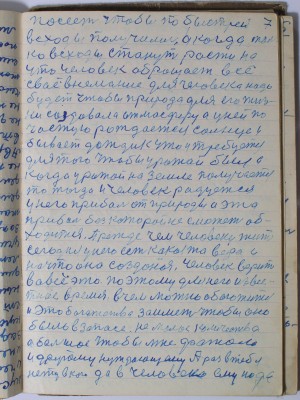 7
посеет чтобы побыстрей
всходы получились а когда
всходы станут расти на
что человек обращает всё
своё внимание для человека надо
будет чтобы природа для его жизни
создавала атмосферу а у ней по
рождается солнце и
бывает дождик что и требуется
для того чтобы урожай был а
когда урожай на земле получается
то тогда и человек радуется
у него прибыл от природы а эта
прибыл без которой не сможет об-
ходится. Прежде чем человеку жить
сегодня у него есть какая та вера и
на что она создана. Человек верит
во всё это по этому для него
время. В чем можно
и Это богатство заимеет чтобы оно
было в запасе, не малое количество
а большое чтобы мне досталось
и другому нуждающему А раз в тебя
нету в кого да в человека ему надо